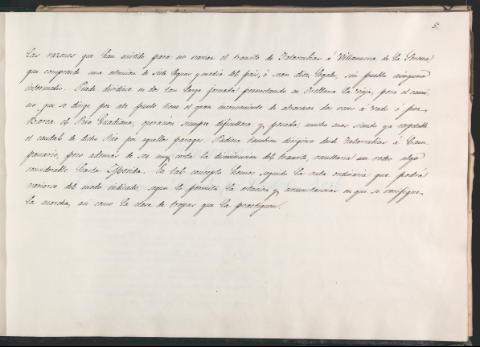 5.
Las razones que han asistido para no variar el transito de Talarrubias á Villanueva de la Serena
que comprende una estension de siete leguas y media del pais, ó sean diez legales, sin pueblo ninguno
intermedio. Puede dividirse en dos tan larga jornada pernoctando en Orellana la vieja, pero el cami
no que se dirige por este punto tiene el gran inconveniente de atravesar dos veces á vado ó por
Barca el Rio Guadiana, operacion siempre dificultosa y pesada, mucho mas siendo ya respetable
el caudal de dicho Rio por aquellos parages. Pudiera tambien dirigirse desde Talarrubias á Cam
panario, pero ademas de ser muy corta la disminucion del transito, resultaria un rodeo algo
considerable hasta Merida. En tal concepto hemos seguido la ruta ordinaria que podrá
variarse del modo indicado, segun lo permita la estacion y circunstancias en que se verifique
la marcha, asi como la clase de tropas que la practiquen.